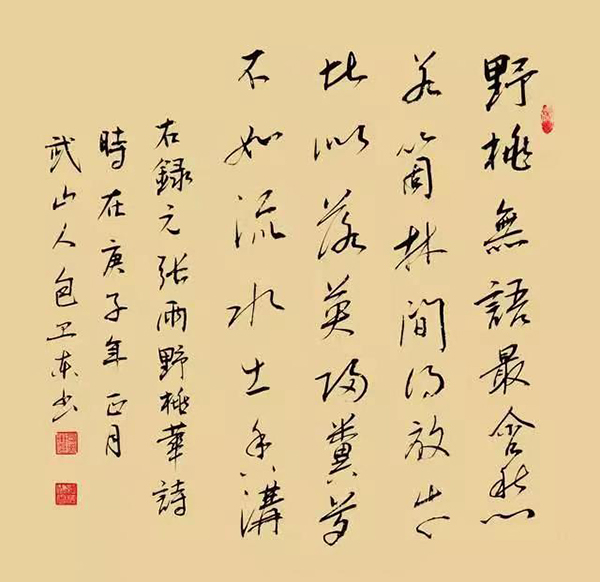 野桃無語最含愁
若箇林間得放
比似落英歸糞
不如流水土香溝
右録元張雨野桃華詩
時在庚子年正月
武山人包卫东书